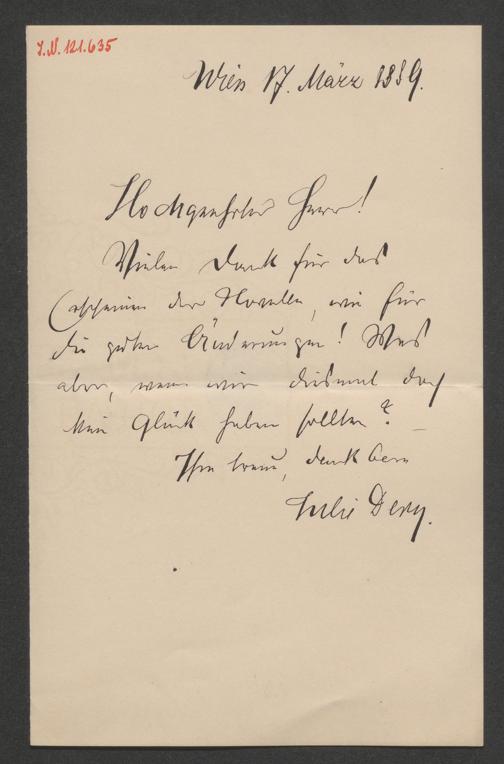 I.N. 121.635
Wien 17. März 1889.
Hochgeehrter Herr!
Vielen Dank für das
der Novelle, wie für
die guten Änderungen! Was
aber, wenn wir diesmal doch
kein Glück haben sollten? –
Ihre treue, dankbare
Julie Dery.